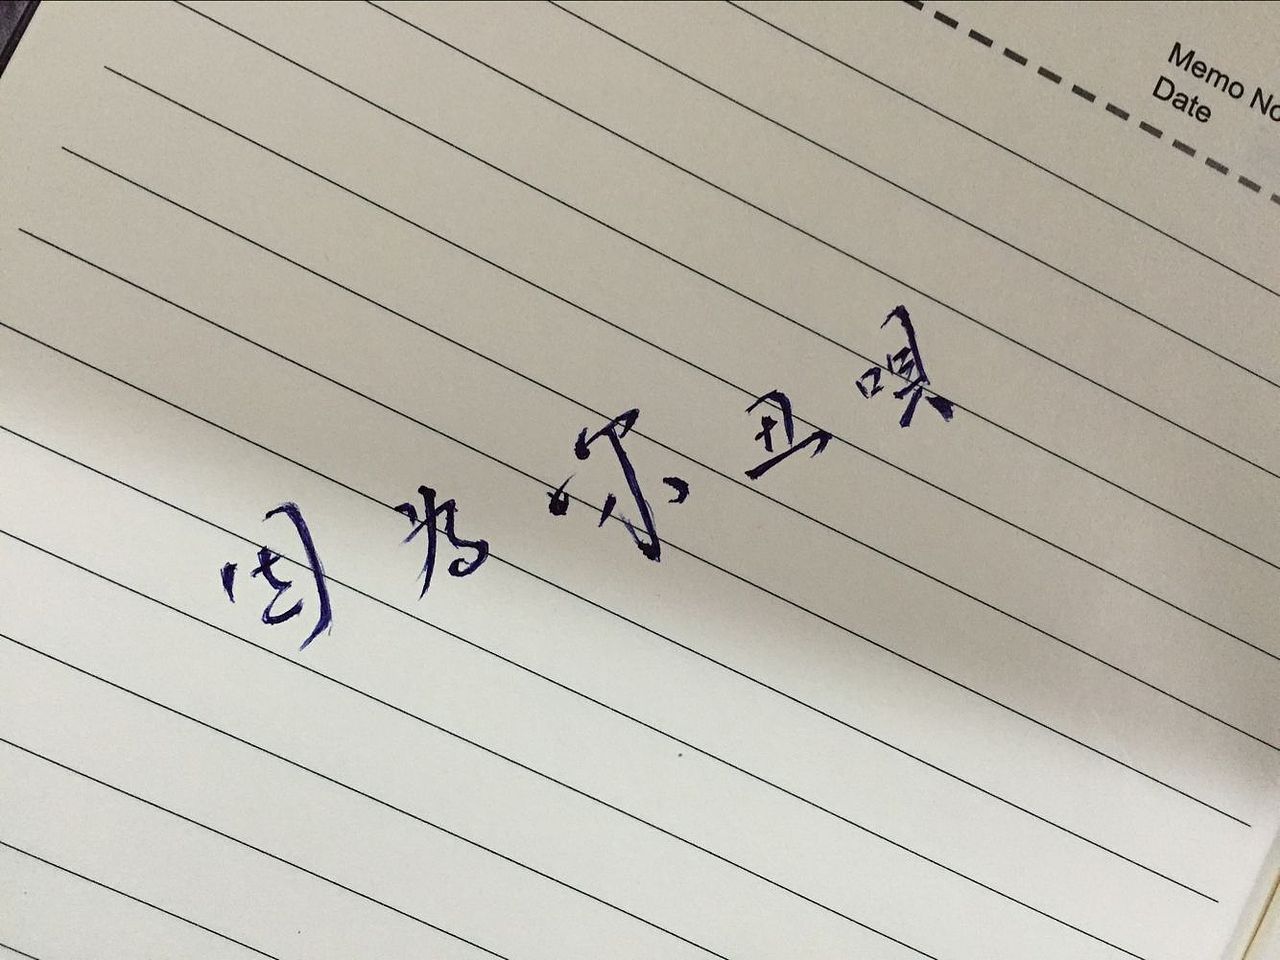 Memo No
Date
因为你丑